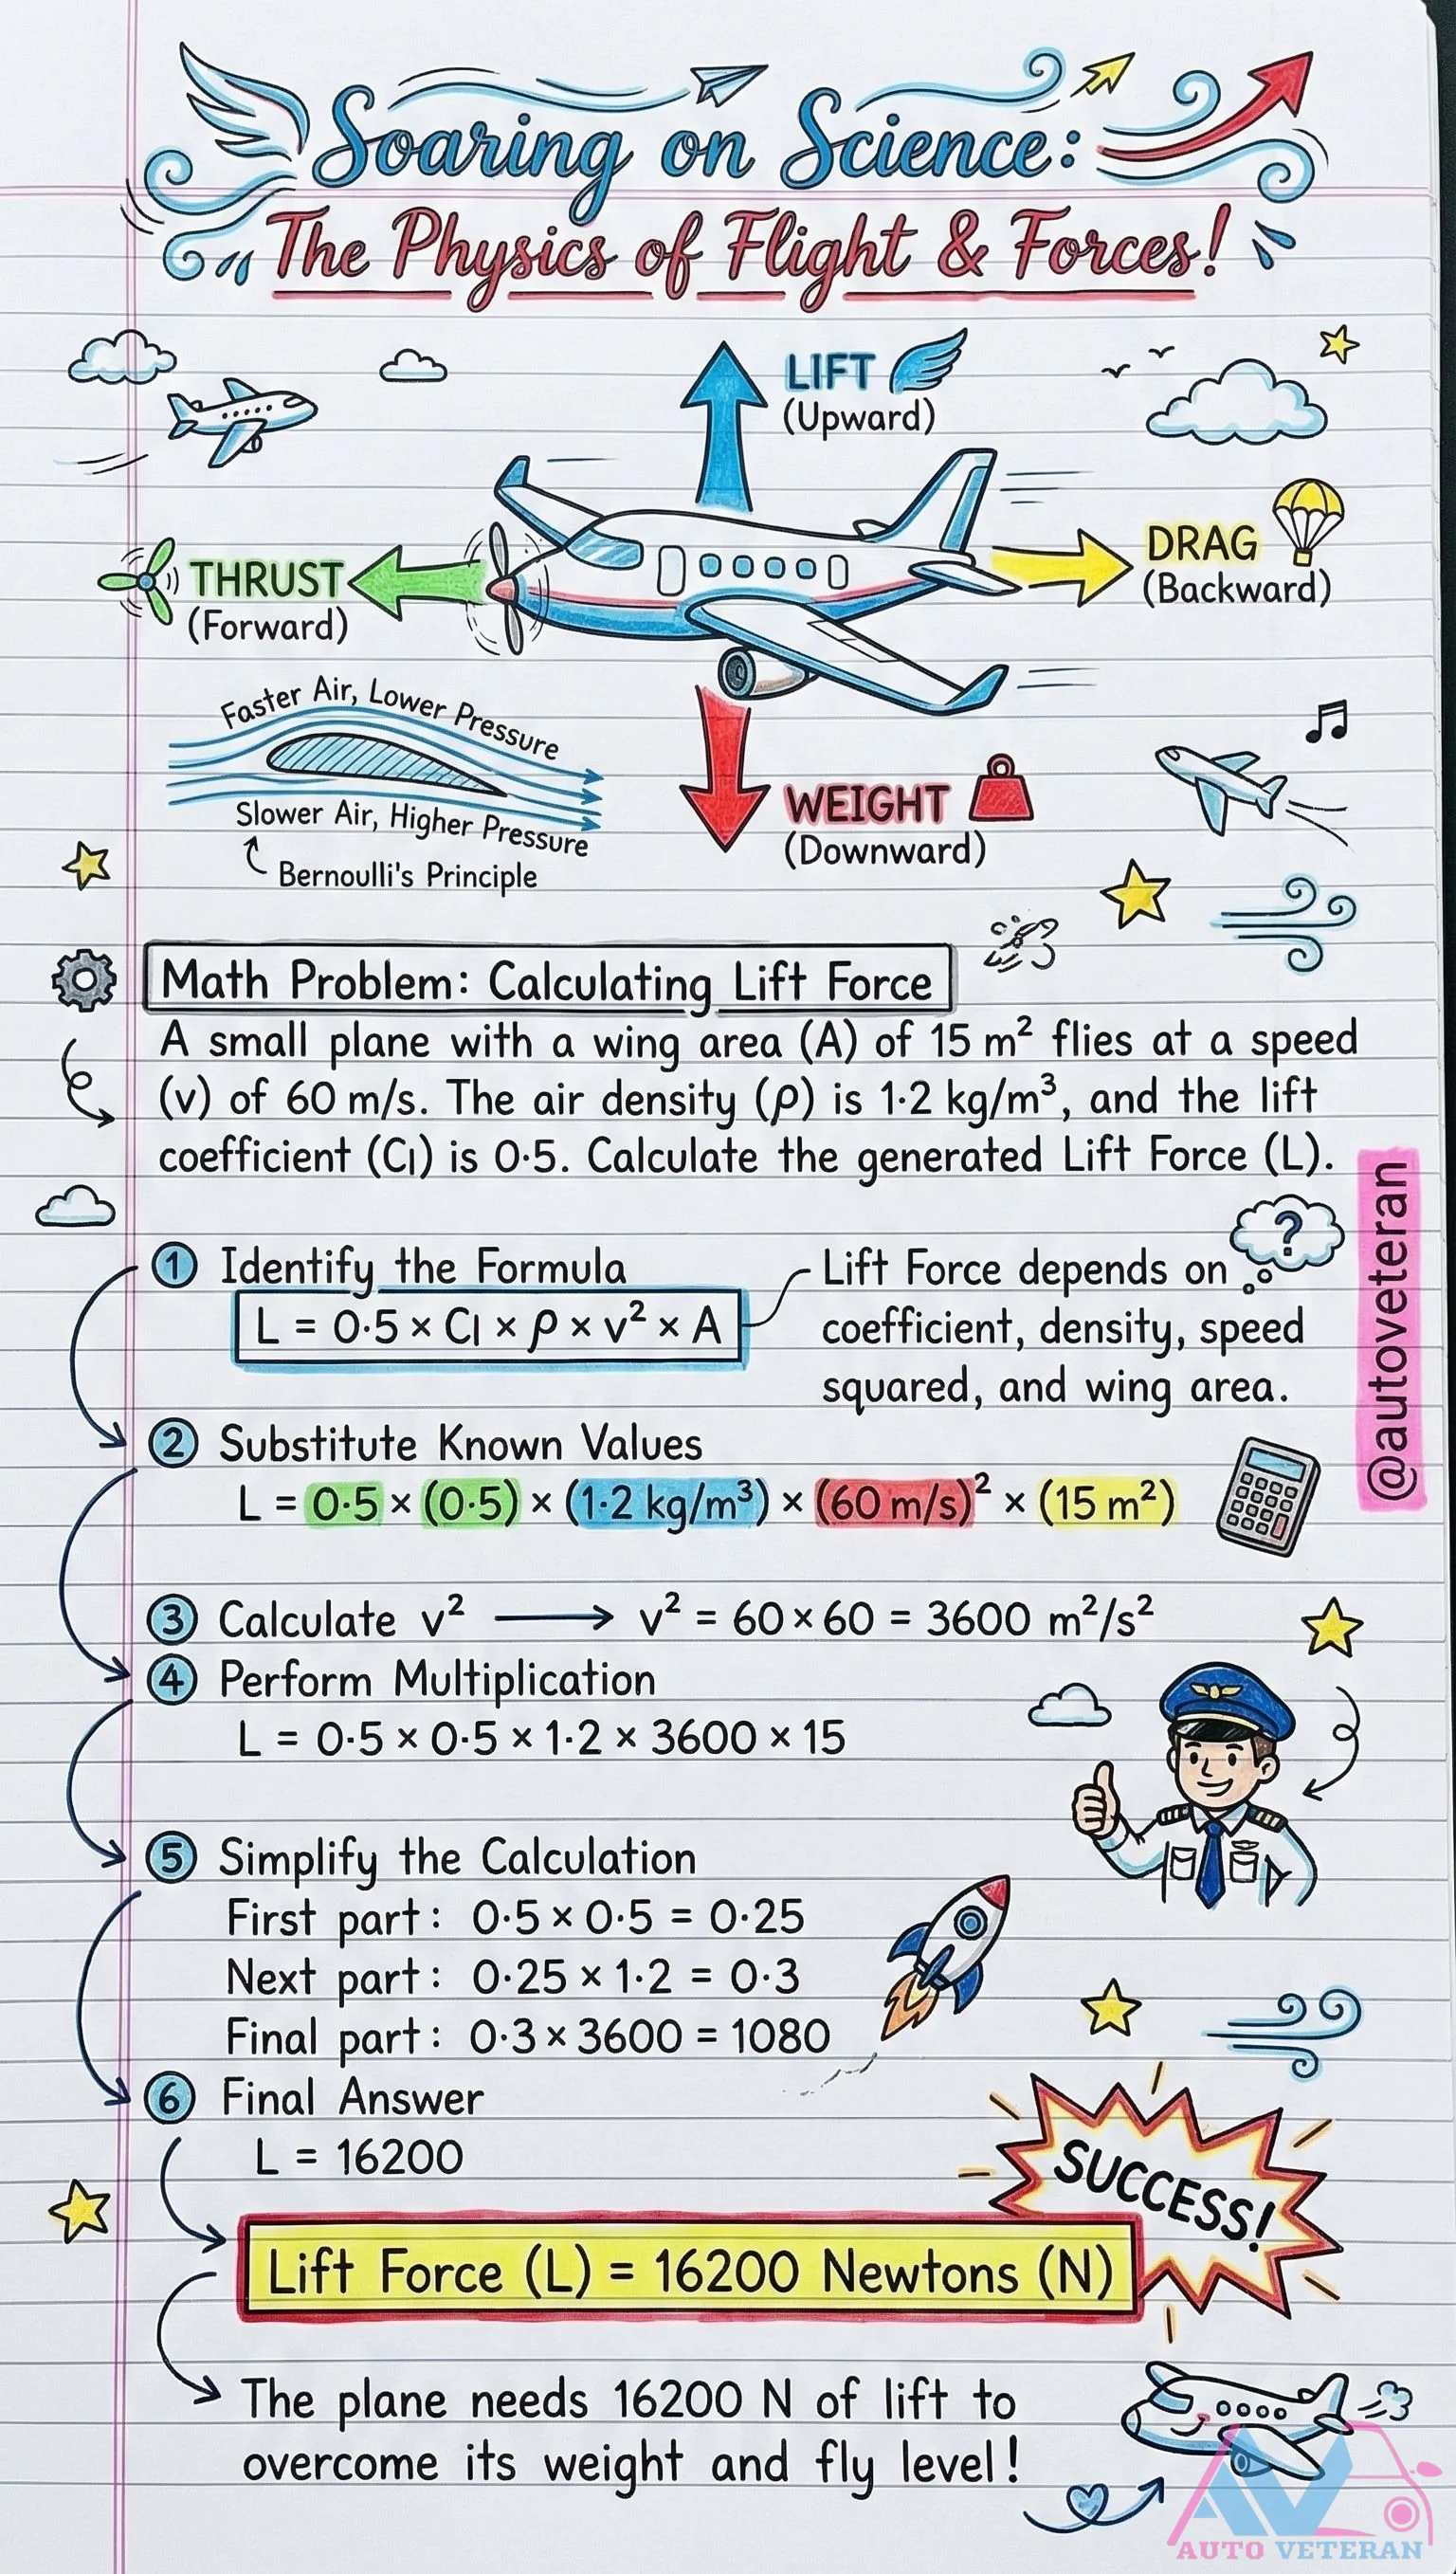 Soaring on Science:
The Physics of Flight & Forces!
LIFT
(Upward)
DRAG
(Backward)
THRUST
(Forward)
Faster Air, Lower Pressure
Slower Air, Higher Pressure
Bernoulli's Principle
WEIGHT
(Downward)
Math Problem: Calculating Lift Force
A small plane with a wing area (A) of 15 m² flies at a speed
(v) of 60 m/s. The air density (ρ) is 1·2 kg/m³, and the lift
coefficient (Cl) is 0·5. Calculate the generated Lift Force (L).
@autoveteran
?
① Identify the Formula
L = 0·5 × Cl × ρ × v² × A
Lift Force depends on
coefficient, density, speed
squared, and wing area.
② Substitute Known Values
L = 0·5 × (0·5) × (1·2 kg/m³) × (60 m/s)² × (15 m²)
③ Calculate v² → v² = 60 × 60 = 3600 m²/s²
④ Perform Multiplication
L = 0·5 × 0·5 × 1·2 × 3600 × 15
⑤ Simplify the Calculation
First part: 0·5 × 0·5 = 0·25
Next part: 0·25 × 1·2 = 0·3
Final part: 0·3 × 3600 = 1080
⑥ Final Answer
L = 16200
SUCCESS!
Lift Force (L) = 16200 Newtons (N)
The plane needs 16200 N of lift to
overcome its weight and fly level!
AV
AUTO VETERAN